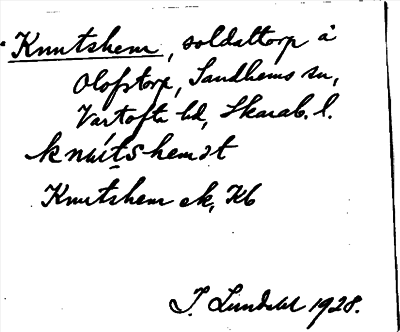 Knutshem, soldattorp å
Olofstorp, Sandhems sn,
Vartofta hd, Skarab. l.
knútshemət
Knutshem ek, Kb
J. Lundahl 1928.